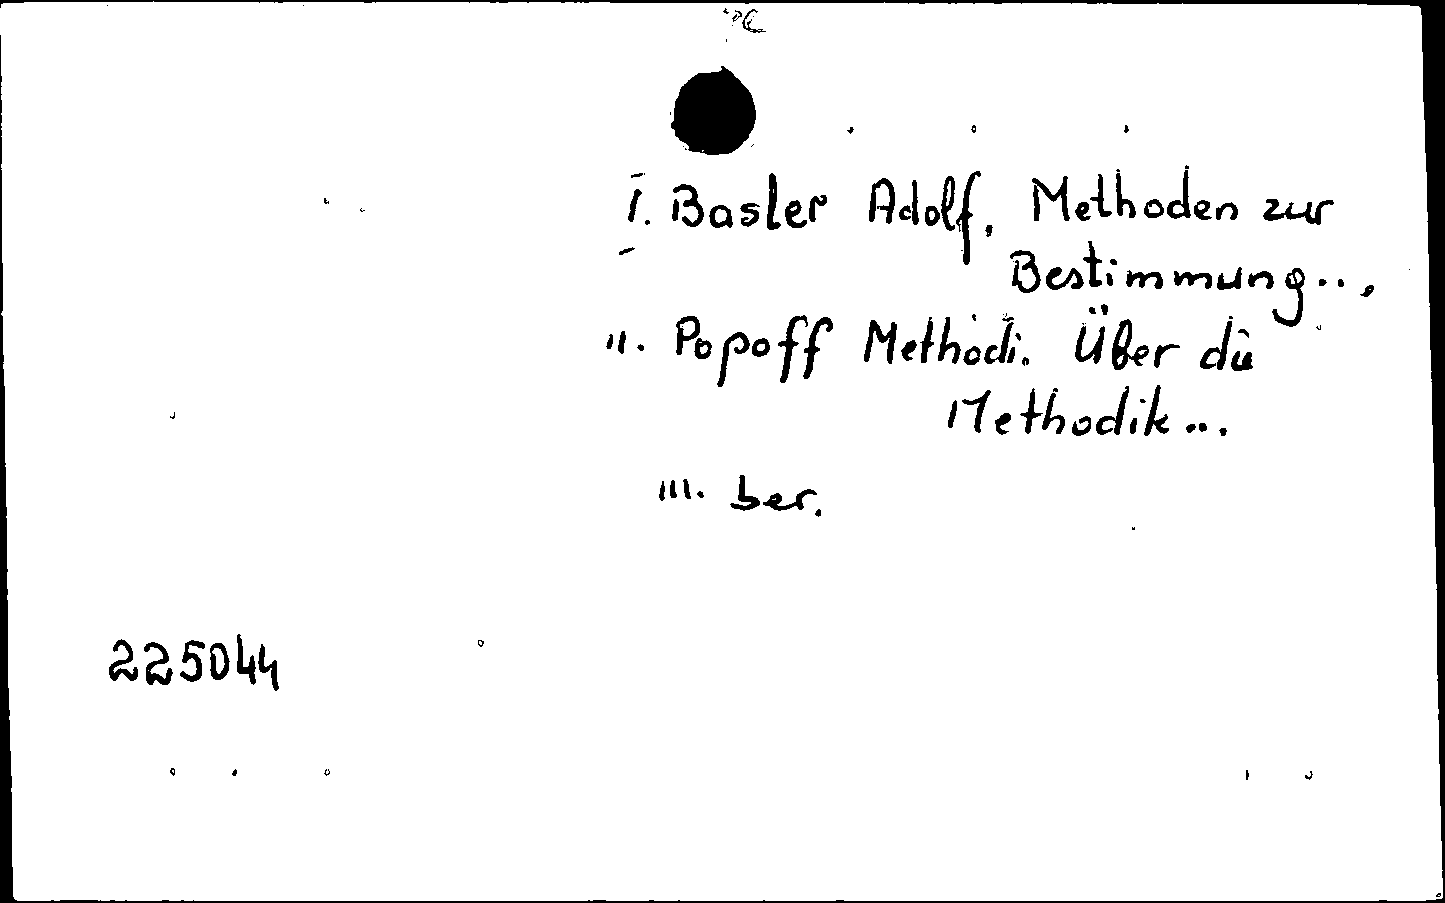 I. Basler Adolf, Methoden zur
Bestimmung...
II. Popoff Methodi. Über die
Methodik...
III. ber.
225044